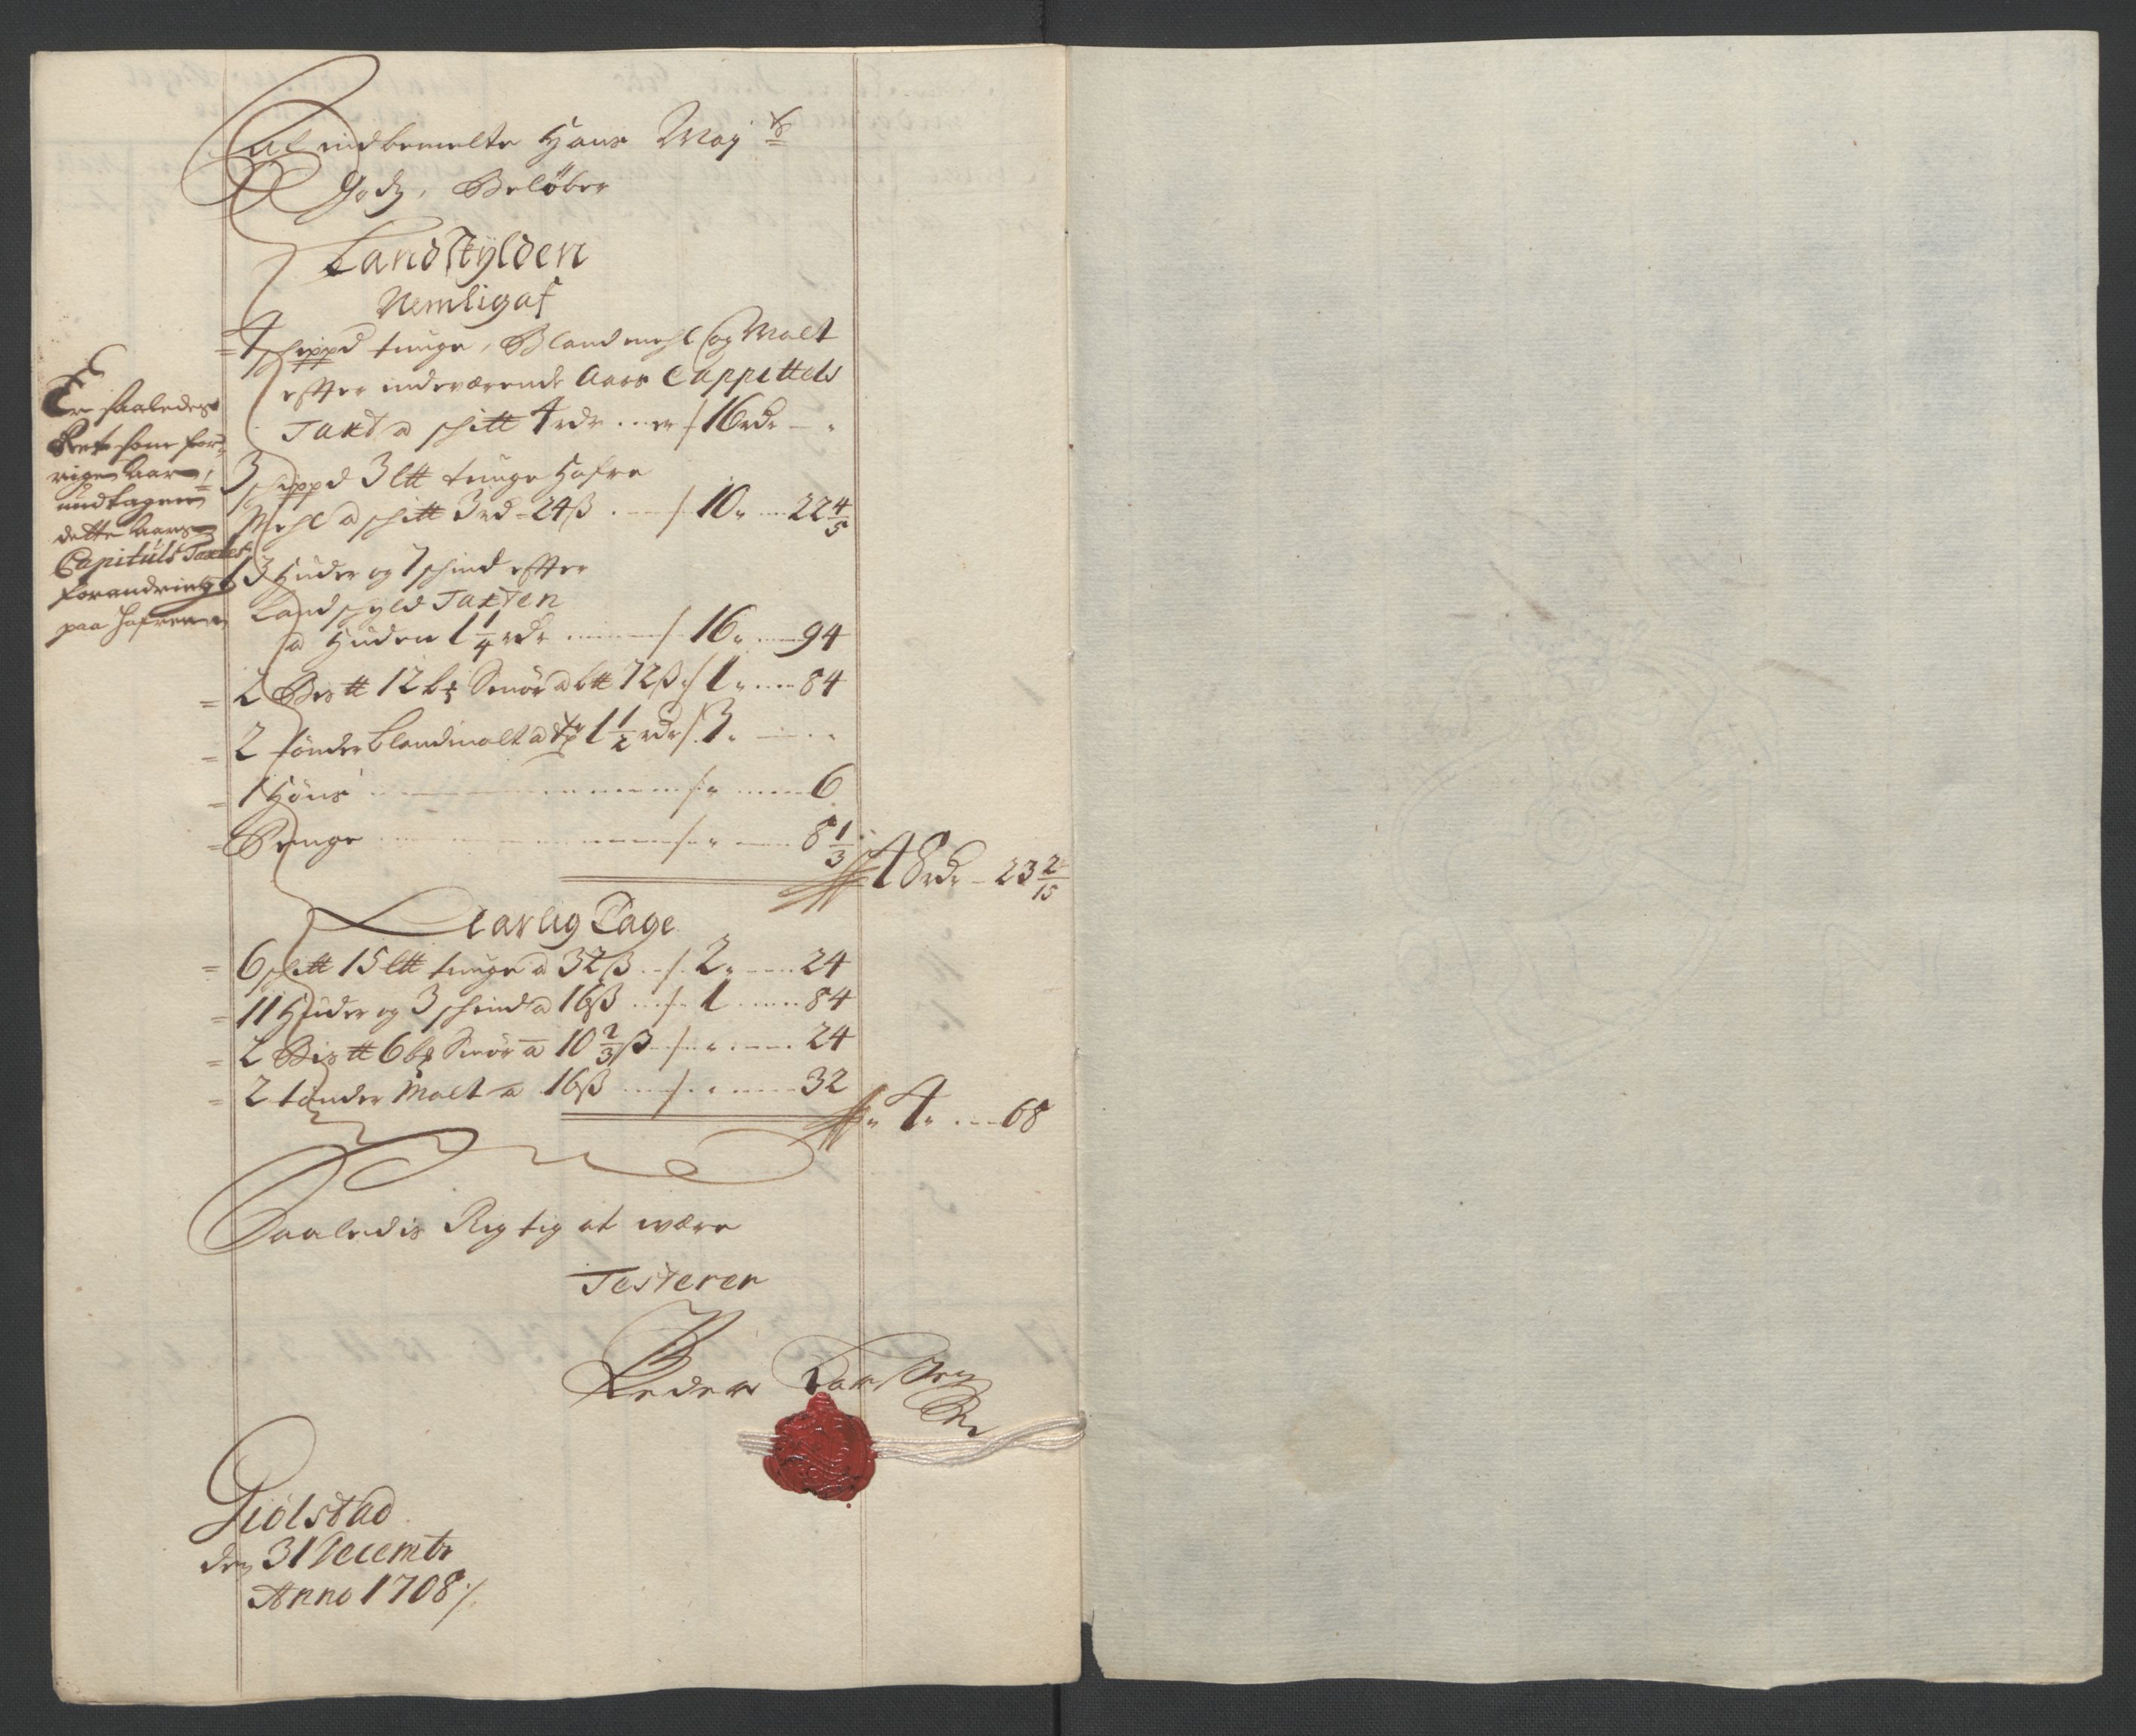 Af indbemelte Hans May:ts
Godz, Beløber
Landskÿlden
Nemlig af
4 schippd tunge, Blandmehl og Malt
efter indeværende Aars Cappittels
Taxt a schitt 4 rdr ... er / 16 rdr — "
3 schippd 3 ltt tunge Hafre
Mehl a schitt 3 rd - 24 ß ... / 10 " ... 22 4/5
13 Huder og 7 schind efter
Landschyld Taxten
a Huden 1 1/4 rdr ... / 16 " ... 94
2 Bis tt 12 bz Smör a btt 72 ß / 1 " ... 84
2 tönder blandmalt a tr 1 1/2 rdr / 3 " — "
1 Höns ... / " ... 6
Penge ... / " ... 8 1/3 // 48 rdr - 23 2/15
Aarlig Tage
6 schtt 15 ltt tunge a 32 ß ... / 2 " ... 24
11 Huder og 3 schind a 16 ß ... / 1 ... 84
2 Bis tt 6 bz Smör a 10 2/3 ß ... / " ... 24
2 tönder Malt a 16 ß ... / " ... 32 // " 4 " ... 68
Saaledis Rigtig at være
Testerer
Peder
Giölstad
den 31 Decembr
Anno 1708 /.
Er saaledes
Ret som for-
rige Aar,
undtagen
dette Aars
Capituls Taxtes
forandring
paa Hafren